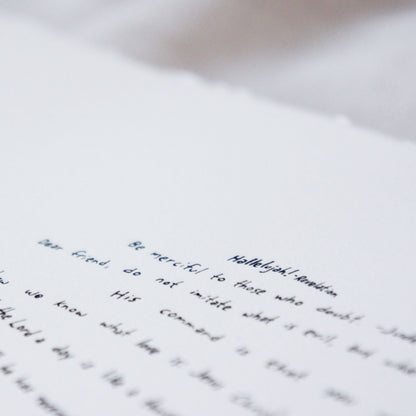 Hallelujah! -Revelation
Be merciful to those who doubt. -Jude
Dear friend, do not imitate what is evil, but what
His command is that you
we know what love is: Jesus
the Lord a day is like a